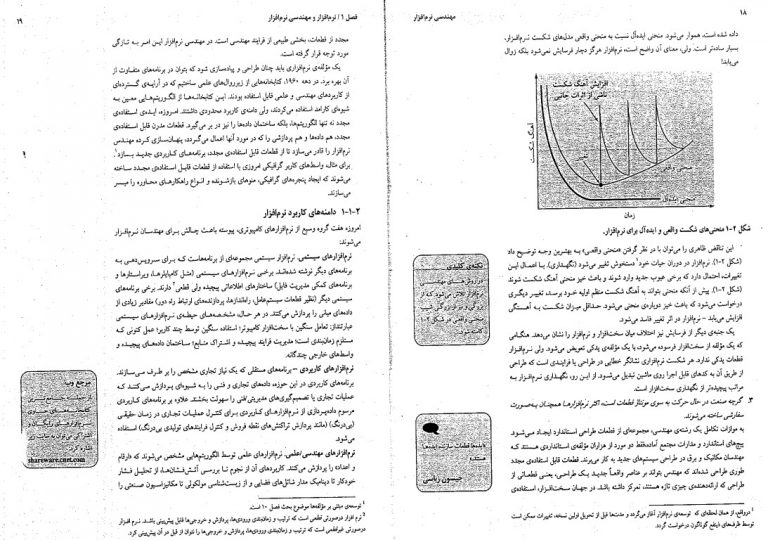 ۱۸
مهندسی نرم‌افزار
داده شده است، هموار می‌شود. منحنی ایده‌آل نسبت به منحنی واقعی مدل‌های شکست نرم‌افزار،
بسیار ساده‌تر است. ولی، معنای آن واضح است، نرم‌افزار هرگز دچار فرسایش نمی‌شود بلکه زوال
می‌یابد!
افزایش آهنگ شکست
ناشی از اثرات جانبی
آهنگ شکست
تغییر
منحنی واقعی
منحنی ایده‌آل
زمان
شکل ۲-۱ منحنی‌های شکست واقعی و ایده‌آل برای نرم‌افزار.
این تناقض ظاهری را می‌توان با در نظر گرفتن «منحنی واقعی» به بهترین وجه توضیح داد
(شکل ۲-۱). نرم‌افزار در دوران حیات خود۱ دستخوش تغییر می‌شود (نگهداری). با اعمال این
تغییرات، احتمال دارد که برخی عیوب جدید وارد شوند و باعث خیز منحنی آهنگ شکست شوند
(شکل ۲-۱). پیش از آنکه منحنی بتواند به آهنگ شکست منظم اولیه خود برسد، تغییر دیگری
درخواست می‌شود که باعث خیز دوباره‌ی منحنی می‌شود. حداقل میزان شکست به آهستگی
افزایش می‌یابد - نرم‌افزار در اثر تغییر فاسد می‌شود.
یک جنبه‌ی دیگر از فرسایش نیز اختلاف میان سخت‌افزار و نرم‌افزار را نشان می‌دهد. هنگامی
که یک مؤلفه از سخت‌افزار فرسوده می‌شود، با یک مؤلفه‌ی یدکی تعویض می‌شود. ولی نرم‌افزار
قطعات یدکی ندارد. هر شکست نرم‌افزاری نشانگر خطایی در طراحی یا فرایندی است که طراحی
از طریق آن به کدهای قابل اجرا روی ماشین تبدیل می‌شود. از این رو، نگهداری نرم‌افزار به
مراتب پیچیده‌تر از نگهداری سخت‌افزار است.
۳. گرچه صنعت در حال حرکت به سوی مونتاژ قطعات است، اکثر نرم‌افزارها همچنان به‌صورت
سفارشی ساخته می‌شوند.
به موازات تکامل یک رشته‌ی مهندسی، مجموعه‌ای از قطعات طراحی استاندارد ایجاد می‌شود.
پیچ‌های استاندارد و مدارات مجتمع آماده فقط دو مورد از هزاران مؤلفه‌ی استانداردی هستند که
مهندسان مکانیک و برق در طراحی سیستم‌های جدید به کار می‌برند. قطعات قابل استفاده‌ی مجدد
طوری طراحی شده‌اند که مهندس بتواند بر عناصر واقعاً جدید یک طراحی، یعنی قطعاتی از
طراحی که ارائه‌دهنده‌ی چیزی تازه هستند، تمرکز داشته باشد. در جهان سخت‌افزار، استفاده‌ی
نکته‌ی کلیدی
در روش‌های مهندسی
نرم‌افزار تلاش می‌شود که از
کاسته شود.
هستند
جیسون
۱ درواقع، از همان لحظه‌ای که توسعه‌ی نرم‌افزار آغاز می‌گردد و مدت‌ها قبل از تحویل اولین نسخه، تغییرات ممکن است
توسط طرف‌های ذینفع گوناگون درخواست گردد.
فصل ۱/ نرم‌افزار و مهندسی نرم‌افزار
۱۹
مجدد از قطعات، بخشی طبیعی از فرایند مهندسی است. در مهندسی نرم‌افزار این امر به تازگی
مورد توجه قرار گرفته است.
یک مؤلفه‌ی نرم‌افزاری باید چنان طراحی و پیاده‌سازی شود که بتوان در برنامه‌های متفاوت از
آن بهره برد. در دهه ۱۹۶۰، کتابخانه‌هایی از زیرروال‌های علمی ساختیم که در آرایه‌ی گسترده‌ای
از کاربردهای مهندسی و علمی قابل استفاده بودند. این کتابخانه‌ها از الگوریتم‌هایی معین به
شیوه‌ای کارآمد استفاده می‌کردند، ولی دامنه‌ی کاربرد محدودی داشتند. امروزه، ایده‌ی استفاده‌ی
مجدد نه تنها الگوریتم‌ها، بلکه ساختمان داده‌ها را نیز در بر می‌گیرد. قطعات مدرن قابل استفاده‌ی
مجدد، هم داده‌ها و هم پردازشی را که در مورد آنها اعمال می‌گردد، پنهان‌سازی کرده مهندس
نرم‌افزار را قادر می‌سازد تا از قطعات قابل استفاده‌ی مجدد، برنامه‌های کاربردی جدید بسازد.۱
برای مثال، واسط‌های کاربر گرافیکی امروزی با استفاده از قطعات قابل استفاده‌ی مجدد ساخته
می‌شوند که ایجاد پنجره‌های گرافیکی، منوهای بازشونده و انواع راهکارهای محاوره را میسر
می‌سازند.
۲-۱-۱ دامنه‌های کاربرد نرم‌افزار
امروزه هفت گروه وسیع از نرم‌افزارهای کامپیوتری، پیوسته باعث چالش برای مهندسان نرم‌افزار
می‌شوند:
نرم‌افزارهای سیستمی. نرم‌افزار سیستمی مجموعه‌ای از برنامه‌هاست که برای سرویس‌دهی به
برنامه‌های دیگر نوشته شده‌اند. برخی نرم‌افزارهای سیستمی (مثل کامپایلرها، ویراستارها و
برنامه‌های کمکی مدیریت فایل) ساختارهای اطلاعاتی پیچیده ولی قطعی۲ دارند. برخی برنامه‌های
سیستمی دیگر (نظیر قطعات سیستم‌عامل، راه‌اندازها، پردازنده‌های ارتباط راه دور) مقادیر زیادی از
داده‌های مبانی را پردازش می‌کنند. در هر حال، مشخصه‌های حیطه‌ی نرم‌افزارهای سیستمی
عبارتنداز: تعامل سنگین با سخت‌افزار کامپیوتر؛ استفاده سنگین توسط چند کاربر؛ عمل کنونی که
مستلزم زمان‌بندی است؛ مدیریت فرایند پیچیده و اشتراک منابع؛ ساختمان داده‌های پیچیده و
واسط‌های خارجی چندگانه.
نرم‌افزارهای کاربردی – برنامه‌های مستقل که یک نیاز تجاری مشخص را بر طرف می‌سازند.
برنامه‌های کاربردی در این حوزه داده‌های تجاری و فنی را به شیوه‌ای پردازش می‌کنند که
عملیات تجاری یا تصمیم‌گیری‌های مدیریتی/فنی را سهولت بخشند. علاوه بر برنامه‌های کاربردی
مرسوم داده‌پردازی از نرم‌افزارهای کاربردی برای کنترل عملیات تجاری در زمان حقیقی
(بی‌درنگ) (مانند پردازش تراکنش‌های نقطه فروش و کنترل فرایندهای تولیدی بی‌درنگ) استفاده
می‌شود.
نرم‌افزارهای مهندسی/علمی. نرم‌افزارهای علمی توسط الگوریتم‌هایی مشخص می‌شوند که «ارقام
و اعداد» را پردازش می‌کنند. کاربردهای آن از نجوم تا بررسی آتش‌فشان‌ها، از تحلیل فشار
خودکار تا دینامیک مدار شاتل‌های فضایی و از زیست‌شناسی مولکولی تا مکانیزاسیون صنعتی را
مرجع وب
shareware.cnet.com
۱ توسعه‌ی مبتنی بر مؤلفه‌ها موضوع بحث فصل ۱۰ است.
۲ نرم افزار درصورتی قطعی است که ترتیب و زمان‌بندی ورودی‌ها، پردازش و خروجی‌ها قابل پیش‌بینی باشد. نرم افزار
درصورتی غیرقطعی است که ترتیب و زمان‌بندی ورودی‌ها، پردازش و خروجی‌ها را نتوان از قبل در آن پیش‌بینی کرد.